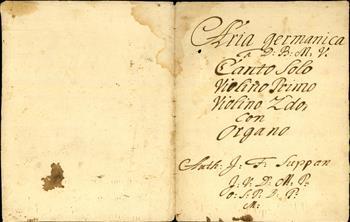 Aria germanica
D: B: M: V:
Canto Solo
Violino Primo
Violino 2do,
con
Organo
Auth: J: F: Suppan
J: V: D: M: P:
O: S: P: D: P:
M: